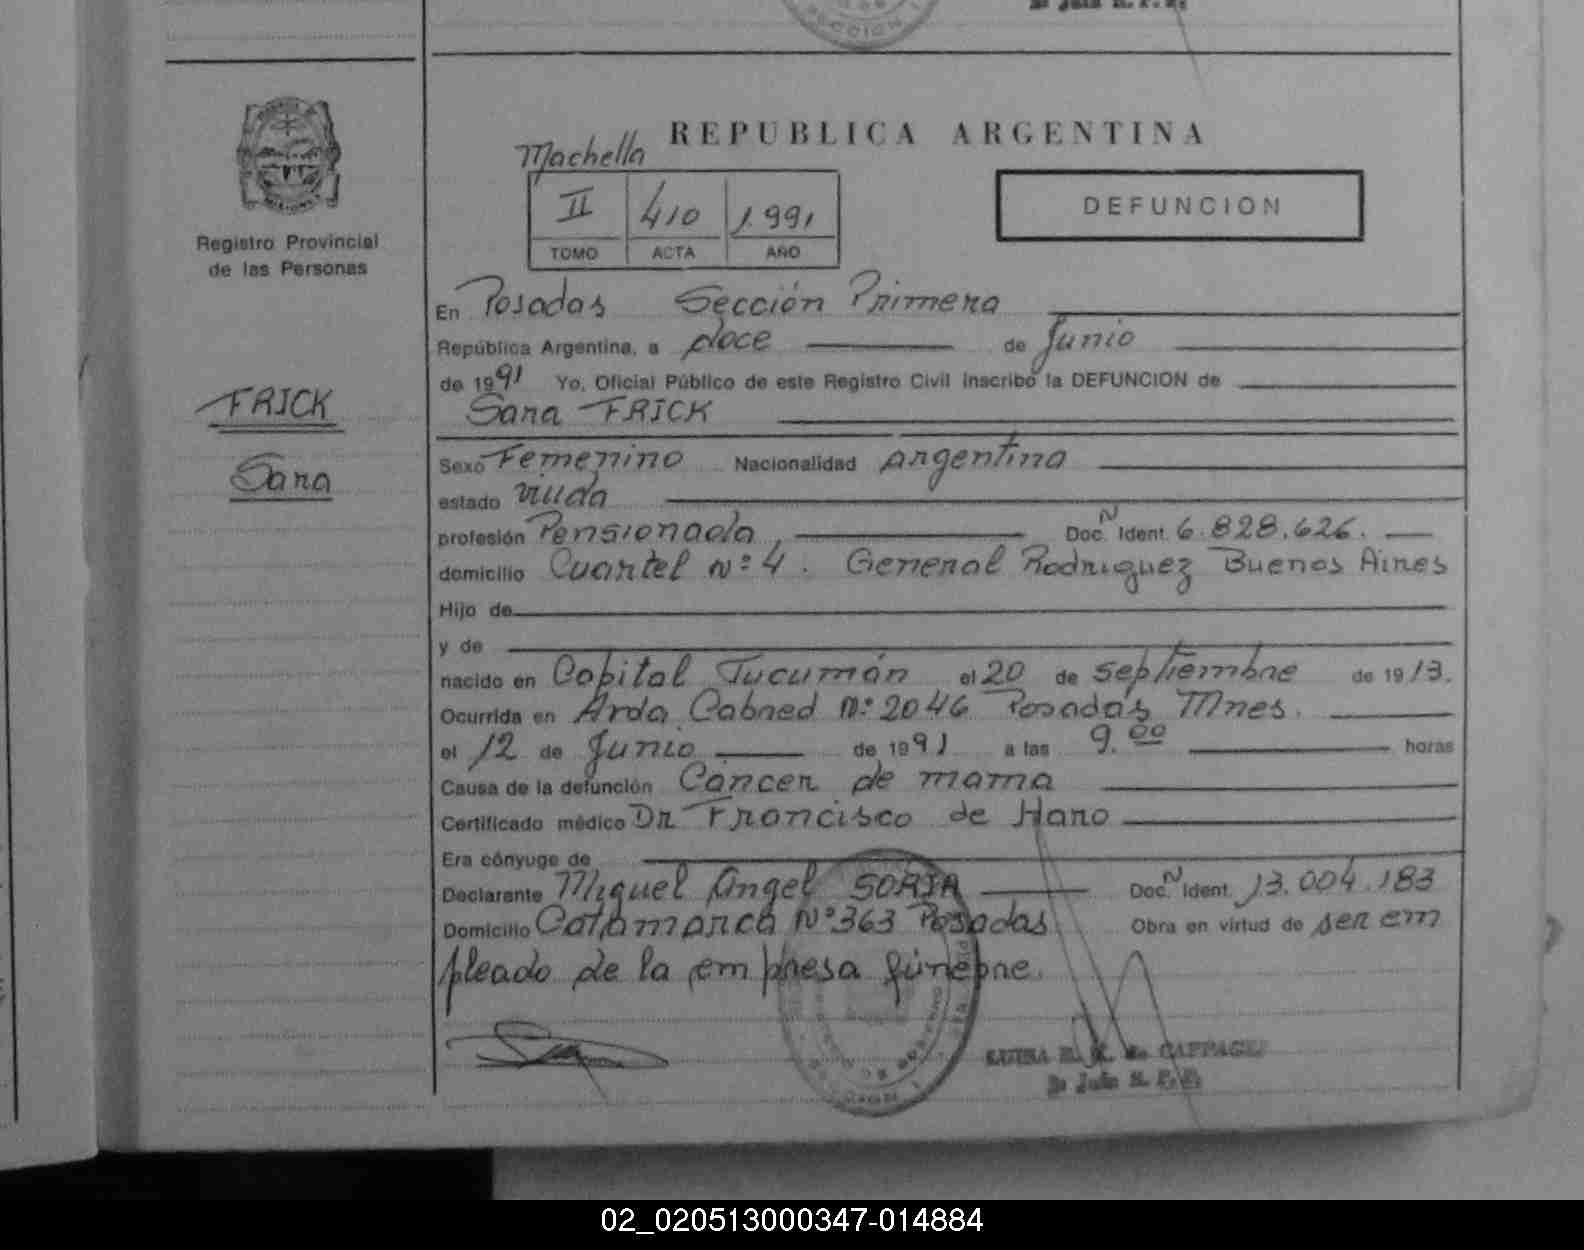 REPUBLICA ARGENTINA
Machella
II 410 1.991
TOMO ACTA AÑO
DEFUNCION
Registro Provincial
de las Personas
FRICK
Sara
En Posadas Sección Primera
República Argentina, a doce de Junio
de 1991 Yo, Oficial Público de este Registro Civil inscribo la DEFUNCION de
Sara FRICK
Sexo Femenino Nacionalidad argentina
estado viuda
profesión Pensionada Doc. N Ident. 6.828.626.
domicilio Cuartel Nº 4. General Rodriguez Buenos Aires
Hijo de
y de
nacido en Capital Tucumán el 20 de septiembre de 1913.
Ocurrida en Avda Cabred Nº 2046 Posadas Mnes.
el 12 de Junio de 1991 a las 9.00 horas
Causa de la defunción Cáncer de mama
Certificado médico Dr Francisco de Haro
Era cónyuge de
Declarante Miguel Angel SORIA Doc. N Ident. 13.004.183
Domicilio Catamarca Nº 363 Posadas Obra en virtud de ser em
pleado de la empresa fúnebre.
02_020513000347-014884